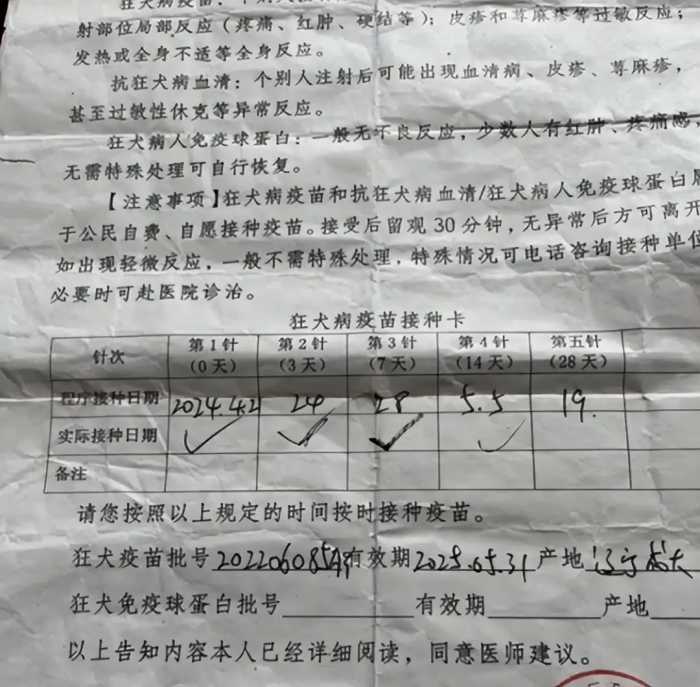 狂犬病疫苗：个别人
射部位局部反应（疼痛、红肿、硬结等）；皮疹和荨麻疹等过敏反应；
发热或全身不适等全身反应。
抗狂犬病血清：个别人注射后可能出现血清病、皮疹、荨麻疹，
甚至过敏性休克等异常反应。
狂犬病人免疫球蛋白：一般无不良反应，少数人有红肿、疼痛感，
无需特殊处理可自行恢复。
【注意事项】狂犬病疫苗和抗狂犬病血清/狂犬病人免疫球蛋白属
于公民自费、自愿接种疫苗。接受后留观30分钟，无异常后方可离开
如出现轻微反应，一般不需特殊处理，特殊情况可电话咨询接种单位
必要时可赴医院诊治。
狂犬病疫苗接种卡
针次 第1针（0天） 第2针（3天） 第3针（7天） 第4针（14天） 第五针（28天）
程序接种日期 2024.4.2 24 28 5.5 19.
实际接种日期 ✓ ✓ ✓ ✓
备注
请您按照以上规定的时间按时接种疫苗。
狂犬疫苗批号 有效期2025.05.31产地辽宁成大
狂犬免疫球蛋白批号 有效期 产地
以上告知内容本人已经详细阅读，同意医师建议。